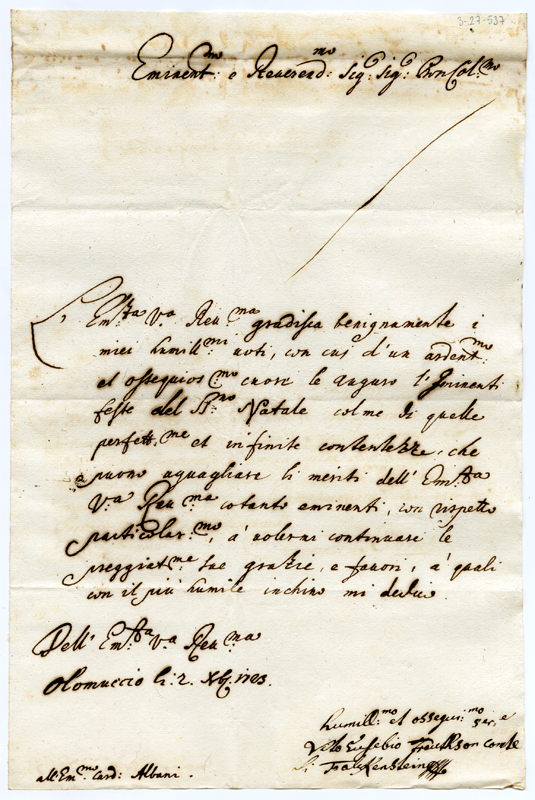 3-27-537
Eminent:mo e Reverend:mo Sig:e Sig:e Pron Col:mo
L'Em:za V.a Reu:ma gradisca benignamente i
miei humill:mi uoti, con cui d'un ardent:mo
et ossequios:mo cuore le auguro l'Iminenti
feste del S:mo Natale colme di quelle
perfett:me et infinite contentezze, che
puono uguagliare li meriti dell' Em:za
V:a Reu:ma cotanto eminenti, con rispetto
particolar:mo, à uolermi continuare le
preggiat:me sue grazie, e fauori, à quali
con il più humile inchino mi dedico.
Dell' Em:za V.a Reu:ma
Olomuccio li: 2. Xbr: 1703.
humill:mo et ossequi:mo ser:e
Eusebio Conte
di
all'Em:mo Card: Albani.